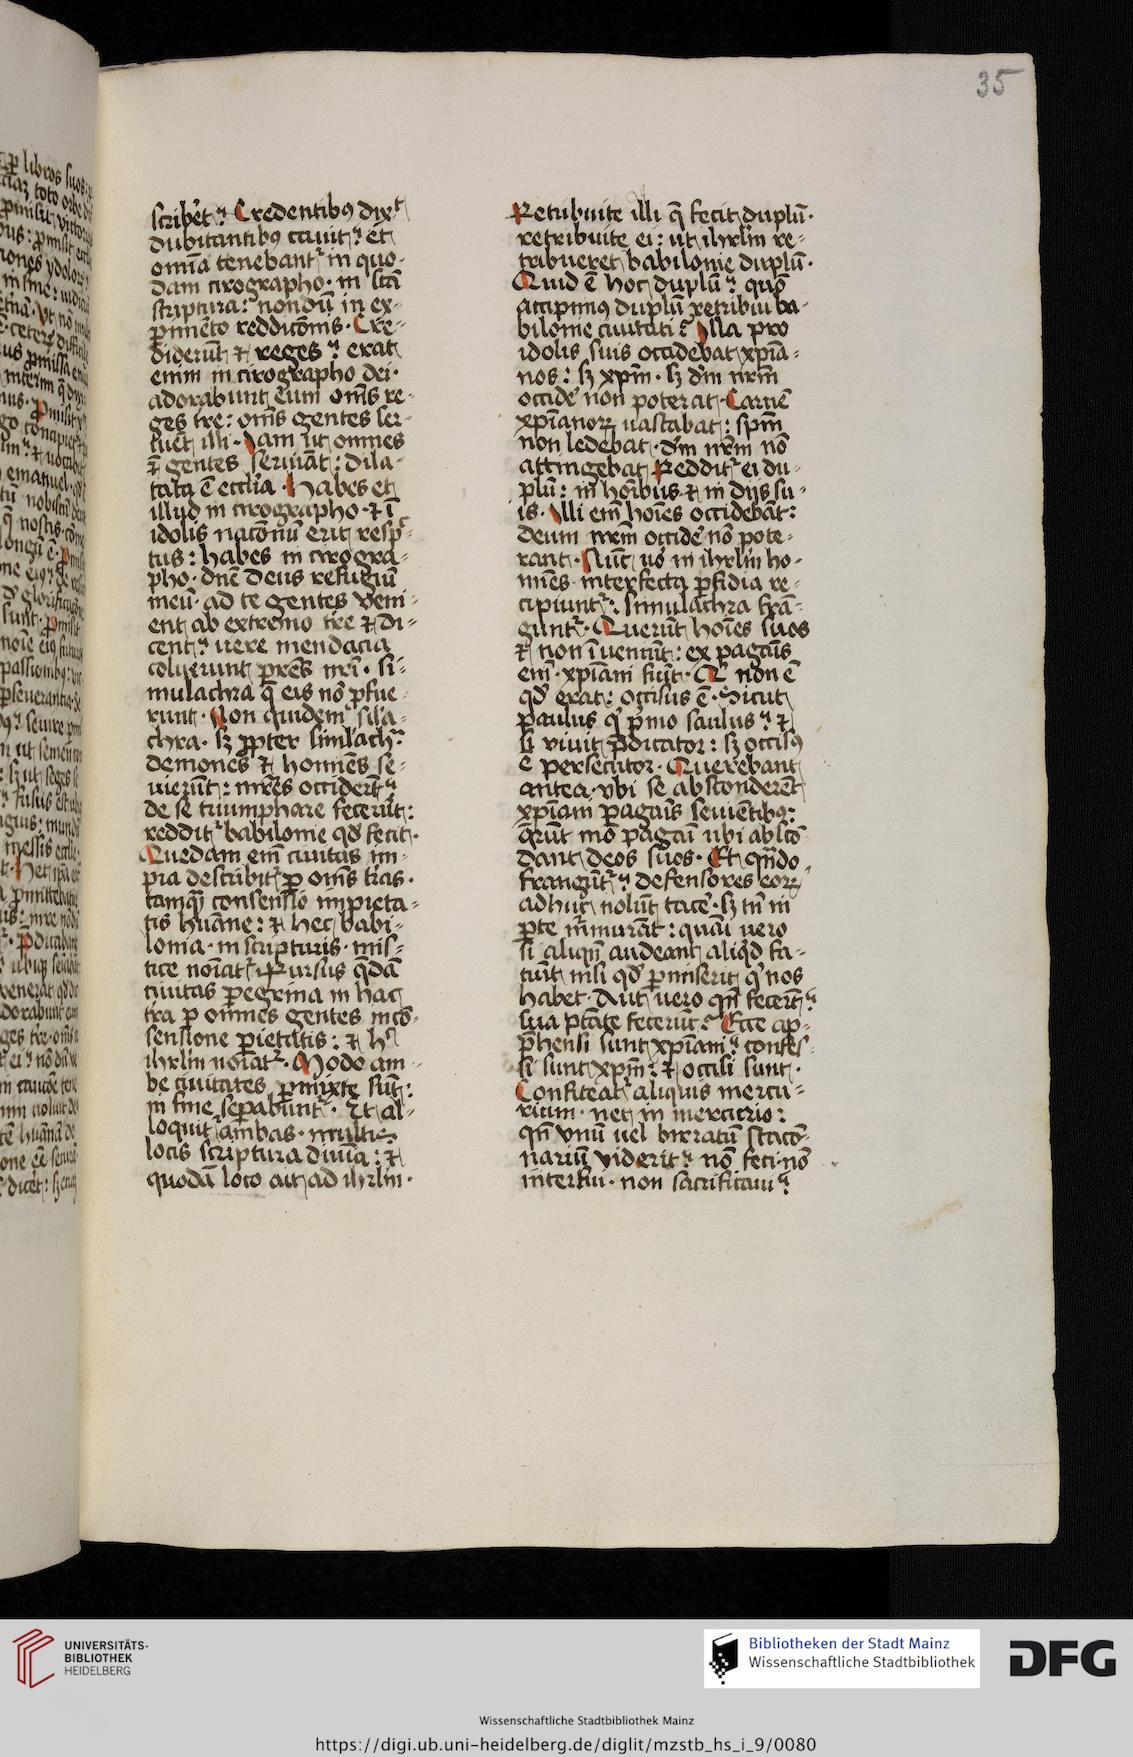 35
scribet᷑ Credentibꝰ dixᵗ
dubitantibꝰ cauit᷑ et
omīa tenebantʳ in quo-
dam cirographo · in scā
scriptura: nondū in ex-
p̱mēto reddicōnis · Cre-
diderūt ⁊ reges᷑ erat
enim in cirographo dei ·
adorabunt eum oms re-
ges tre: oms gentes ser-
uiēt illi · Jam ut omnes
⁊ gentes seruiāt: dila-
tata ē ecclia · Habes et
illud in cirographo · ⁊ ī
idolis nacōnū erit resp̄c-
tus: habes in cirogra-
pho · dnē deus refugiū
meū · ad te gentes veni-
ent ab extremo tre ⁊ di-
cent᷑ uere mendacia
coluerunt prēs nrī · si-
mulachra q̄ eis nō ꝓfue-
runt · Non quidem sila-
chra · sꝫ ꝓpter simlach᷑
demones ⁊ homīes se-
uierūt: mr̄es occiderūt᷑
de se triumphare fecerūt:
redditʳ babilonie qd̄ fecit ·
Quedam em̄ ciuitas im-
pia describitʳ ꝑ oms tras ·
tamqᷓ consensio impieta-
tis hūane: ⁊ hec babi-
lonia · in scripturis · mis-
tice noīatʳ · Rursus q̄dā
ciuitas ꝑegrina in hac
tra ꝑ omnes gentes in cō-
sensione pietatis: ⁊ h᷑
ihrlm noīatʳ · Modo am-
be ciuitates ꝑmixte sūt:
in fine seꝑabuntʳ · Et al-
loquitʳ ambas · multis
locis scriptura diuīa: ⁊
quodā loco ait ad ihrlm ·
Retribuite illi q̄ fecit duplū ·
retribuite ei: ut ihrlm re-
tribueret babilonie duplū ·
Quid ē hoc duplū᷑ quō
accipimꝰ duplū retribui ba-
bilonie ciuitati᷑ Illa pro
idolis suis occidebat xp̄ia-
nos: sꝫ xpm̄ · sꝫ dm̄ nrm̄
occidē non poterat · Carnē
xp̄ianoꝝ uastabat: spm̄
non ledebat · dm̄ nrm̄ nō
attingebat Redditʳ ei du-
plū: in hoībus ⁊ in dijs su-
is · Illi em̄ hoīes occidebāt:
deum nrm̄ occidē nō pote-
rant · Nūc uō in ihrlm ho-
mīes interfecta ꝑfidia re-
cipiuntʳ: simulachra frā-
guntʳ · Querūt hoīes suos
⁊ non īuentūt: ex paganis
em̄ · xp̄iani fiūt · Qʳ non ē
qd̄ erat: occisus ē · Sicut
paulus qʳ pⁱmo saulus᷑ ⁊
si viuit p̄dicator: sꝫ occisꝰ
ē persecutor · Querebant
antea · vbi se absconderēt
xp̄iani paganis seuiētibꝰ:
q̄rūt mō pagani vbi abscō-
dant deos suos · Et qn̄do
frangūtʳ᷑ defensores eoꝝ
adhuc nolūt tacē · sꝫ tn̄ in
ꝑte mʳmurāt: quāuī uero
si aliqn̄ audeant aliqd̄ fa-
ciūt nisi qd̄ ꝑmiserit qʳ nos
habet · Aut uero qn̄ fecerūt᷑
sua ptāte fecerūt᷑ Ecce ap-
p̄hensi sunt xp̄iani᷑ confes-
si sunt xpm̄: ⁊ occisi sunt ·
Confiteatʳ aliquis mercu-
rium · nec in mercurio:
qn̄ vnū uel birratū stacō-
nariū viderit᷑ nō feci · nō
interfui · non sacrificaui᷑
UNIVERSITÄTS-
BIBLIOTHEK
HEIDELBERG
Bibliotheken der Stadt Mainz
Wissenschaftliche Stadtbibliothek
DFG
Wissenschaftliche Stadtbibliothek Mainz
https://digi.ub.uni-heidelberg.de/diglit/mzstb_hs_i_9/0080